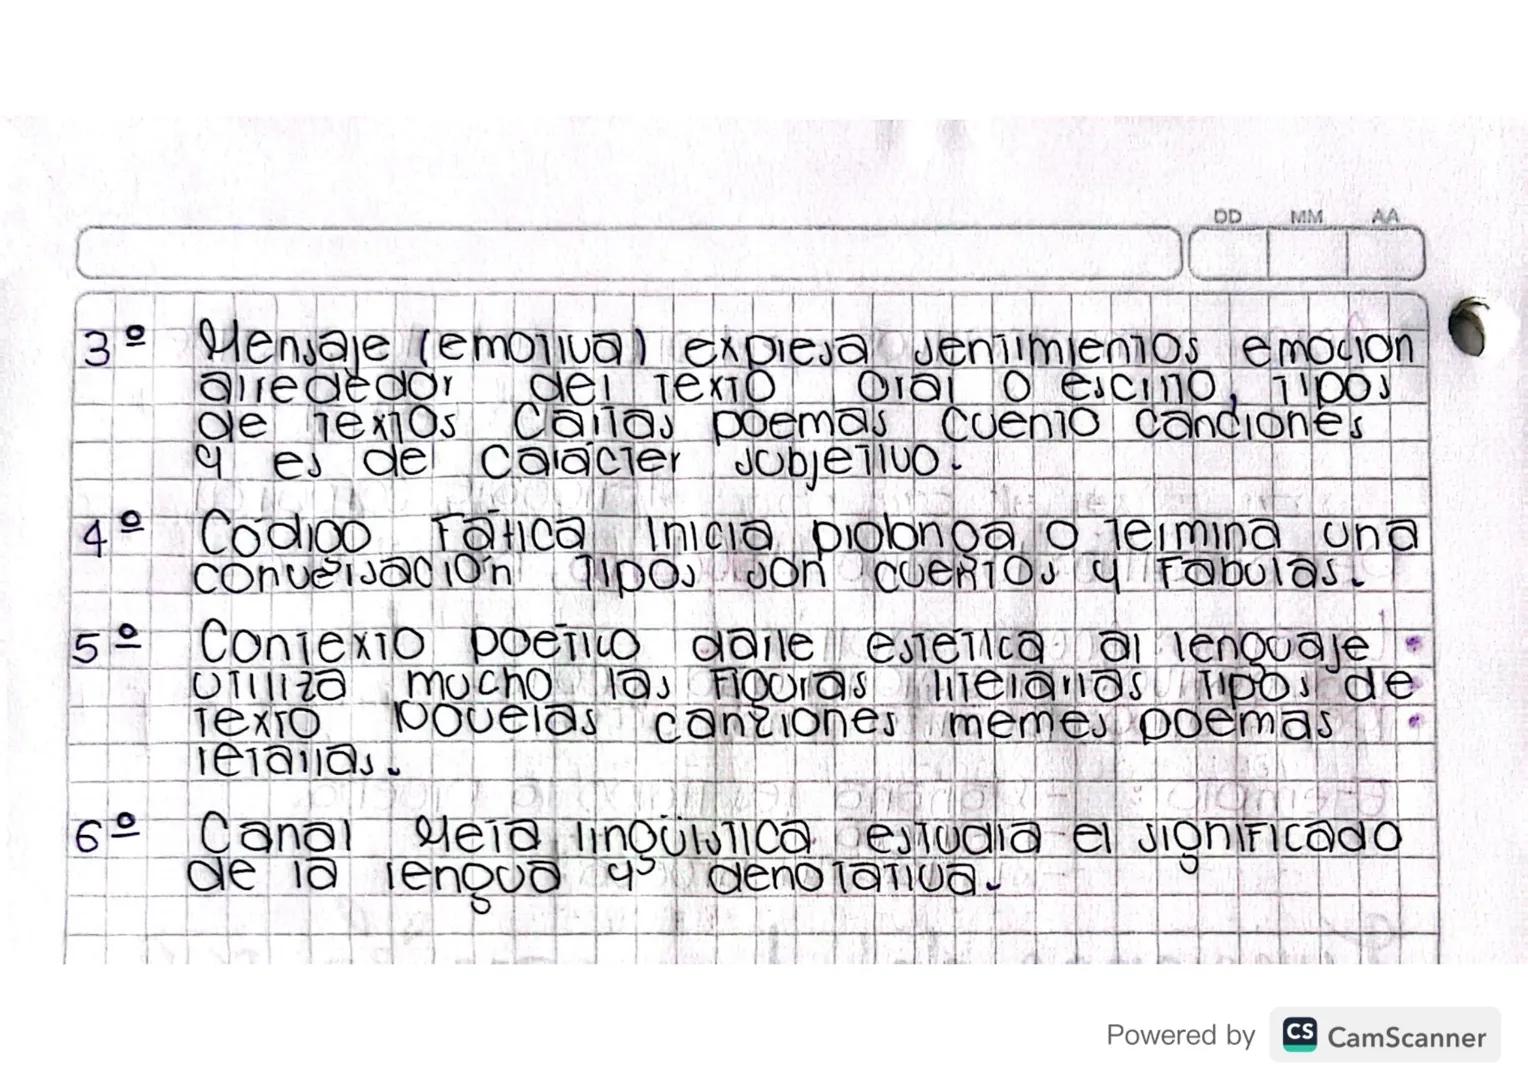 DD MM AA
3º Mensaje (emotiva) expresa sentimientos emocion
alrededor del texto oral o escrito, tipos
de textos cartas poemas cuento canciones
y es de caracter subjetivo.
4º Codigo Fática inicia prolonga o termina una
conversación tipos son cuentos y Fabulas.
5º Contexto poetico darle estetica al lenguaje
utiliza mucho las Figuras literarias tipos de
texto novelas canciones memes poemas
retarias.
6º Canal Meta lingüistica estudia el significado
de la lengua y denotativa.
Powered by CS CamScanner